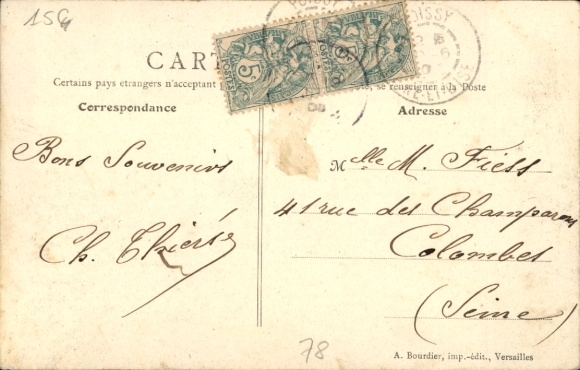 15€
POISSY
CARTE
Certains pays etrangers n'acceptant se renseigner à la Poste
Correspondance
Adresse
Bons Souvenirs
Ch. Thiers
Melle M. Fiess
41 rue des Champarons
Colombes
(Seine)
78
A. Bourdier, imp.-édit., Versailles